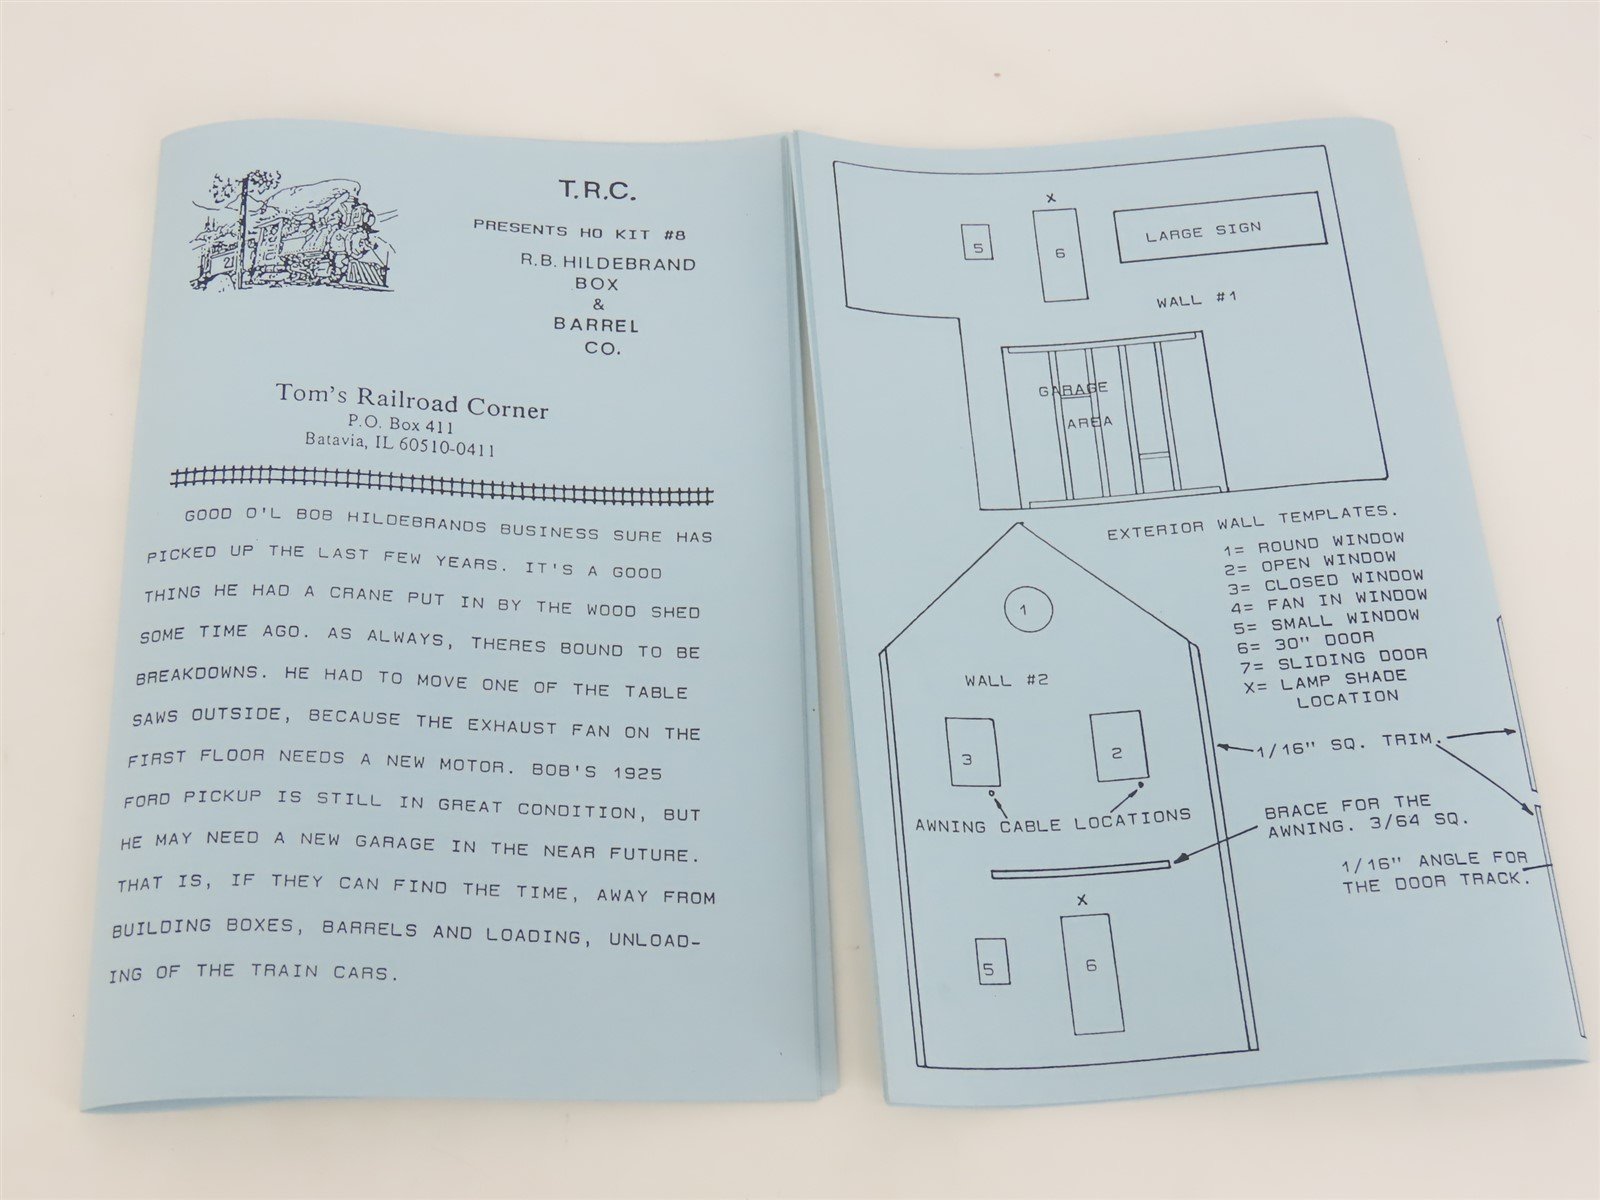 T.R.C.
PRESENTS HO KIT #8
R.B. HILDEBRAND
BOX
&
BARREL
CO.
Tom's Railroad Corner
P.O. Box 411
Batavia, IL 60510-0411
GOOD O'L BOB HILDEBRANDS BUSINESS SURE HAS
PICKED UP THE LAST FEW YEARS. IT'S A GOOD
THING HE HAD A CRANE PUT IN BY THE WOOD SHED
SOME TIME AGO. AS ALWAYS, THERES BOUND TO BE
BREAKDOWNS. HE HAD TO MOVE ONE OF THE TABLE
SAWS OUTSIDE, BECAUSE THE EXHAUST FAN ON THE
FIRST FLOOR NEEDS A NEW MOTOR. BOB'S 1925
FORD PICKUP IS STILL IN GREAT CONDITION, BUT
HE MAY NEED A NEW GARAGE IN THE NEAR FUTURE.
THAT IS, IF THEY CAN FIND THE TIME, AWAY FROM
BUILDING BOXES, BARRELS AND LOADING, UNLOAD-
ING OF THE TRAIN CARS.
X
5
6
LARGE SIGN
WALL #1
GARAGE
AREA
EXTERIOR WALL TEMPLATES.
1= ROUND WINDOW
2= OPEN WINDOW
3= CLOSED WINDOW
4= FAN IN WINDOW
5= SMALL WINDOW
6= 30" DOOR
7= SLIDING DOOR
X= LAMP SHADE
LOCATION
1
WALL #2
3
2
1/16" SQ. TRIM.
AWNING CABLE LOCATIONS
BRACE FOR THE
AWNING. 3/64 SQ.
1/16" ANGLE FOR
THE DOOR TRACK.
X
5
6